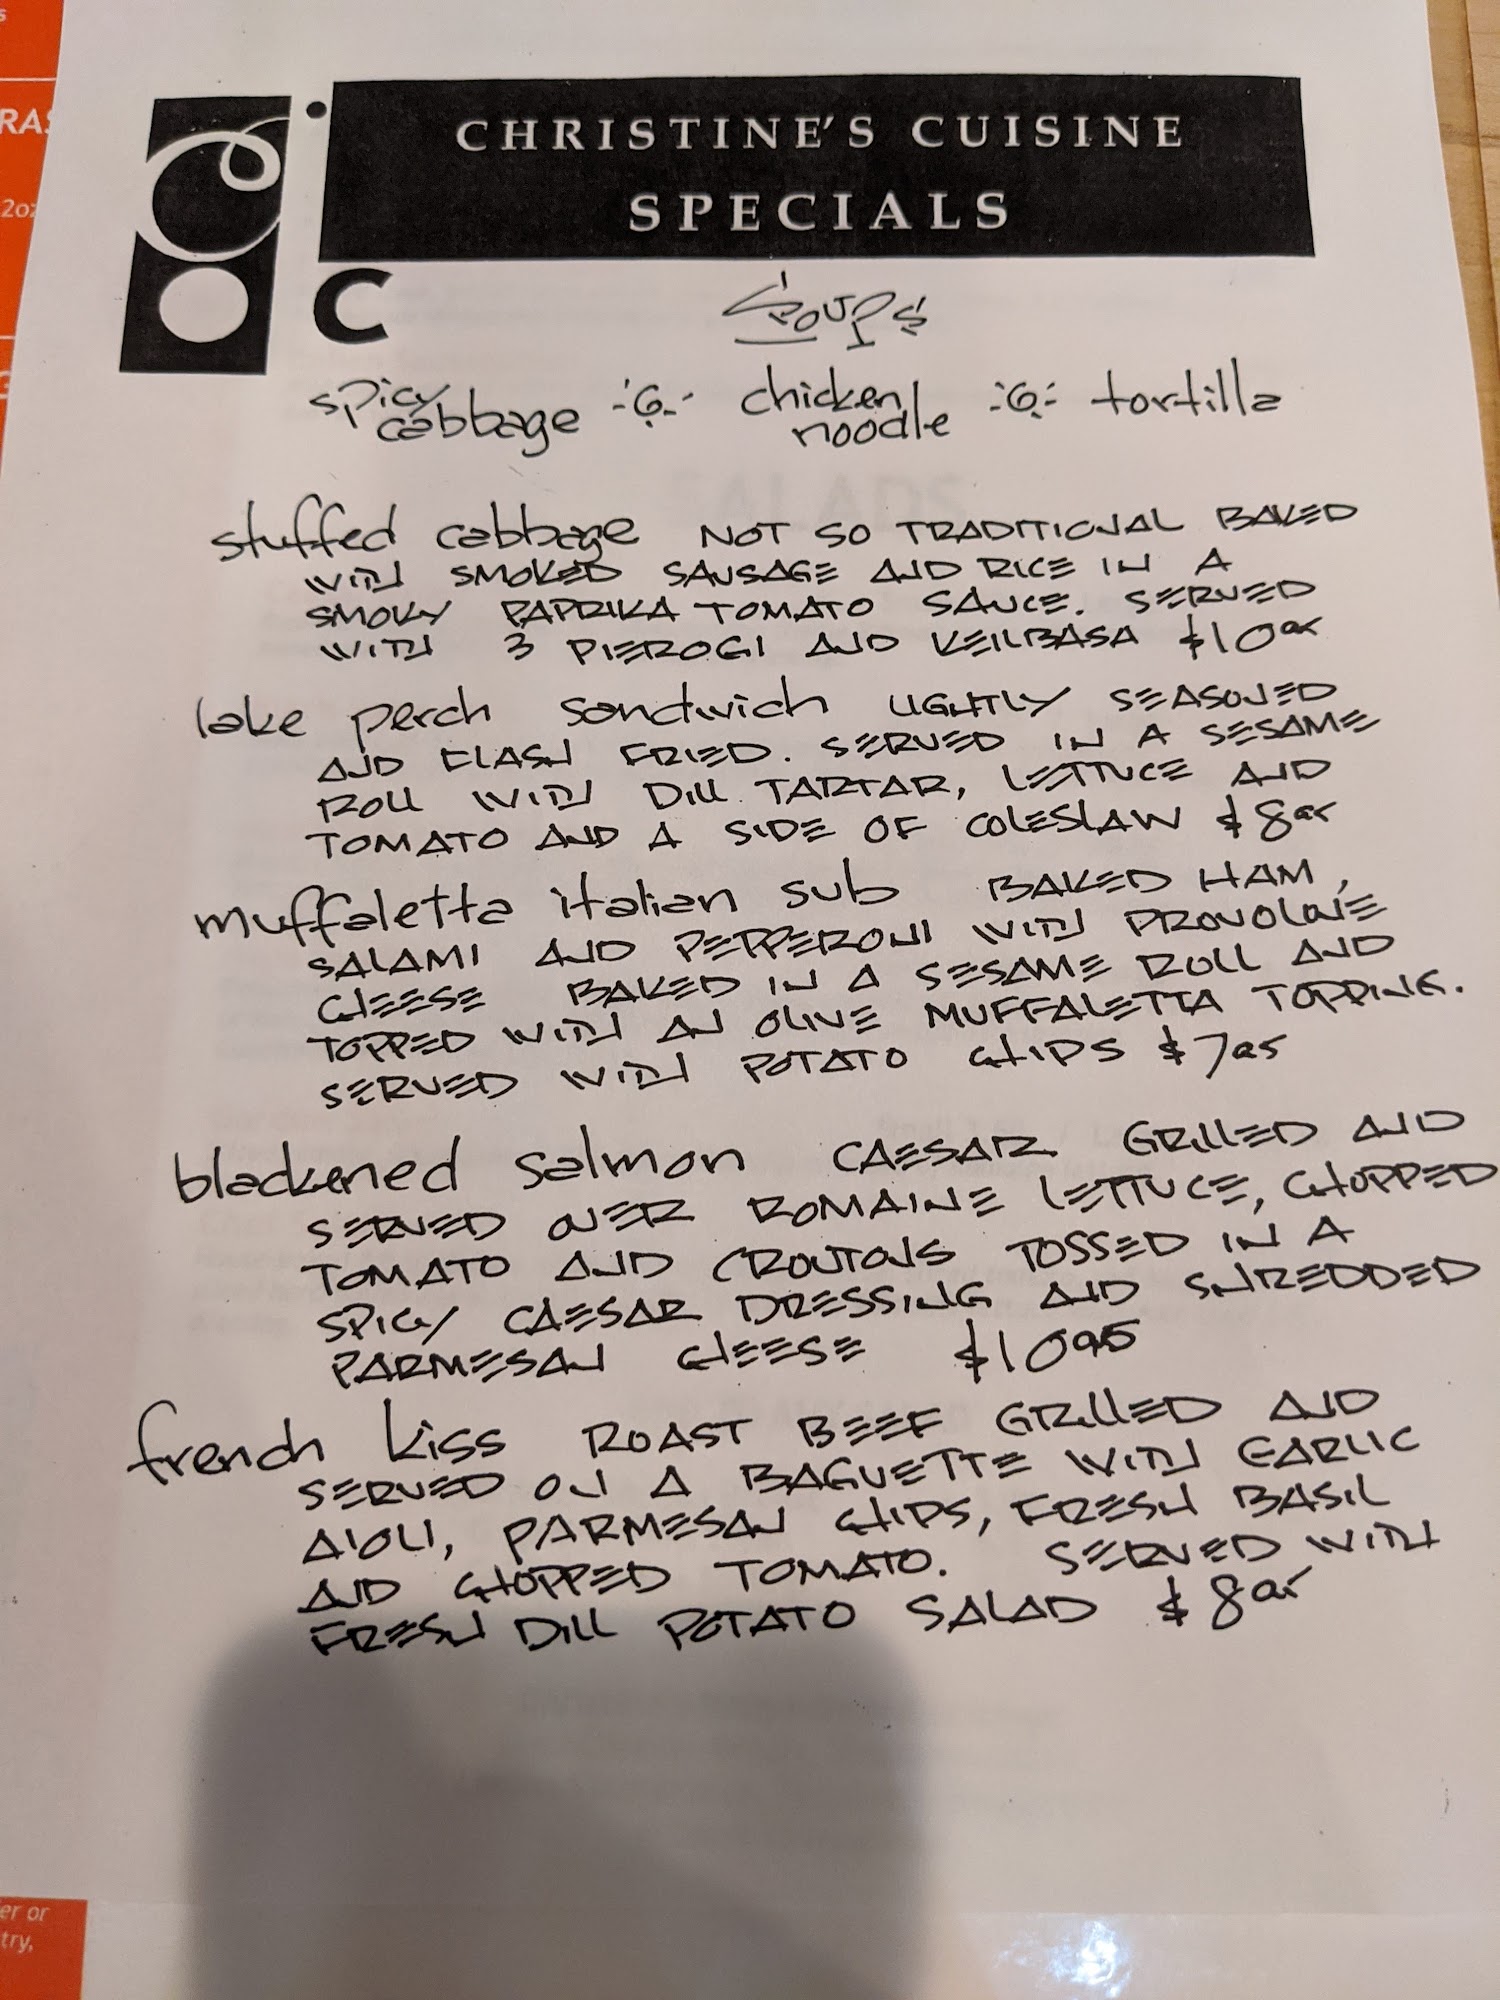 s
RAS
2oz
3
CHRISTINE'S CUISINE
SPECIALS
C
SOUPS
spicy cabbage chicken noodle tortilla
stuffed cabbage NOT SO TRADITIONAL BAKED
WITH SMOKED SAUSAGE AND RICE IN A
SMOKY PAPRIKA TOMATO SAUCE. SERVED
WITH 3 PIEROGI AND KEILBASA $10.95
lake perch sandwich LIGHTLY SEASONED
AND FLASH FRIED. SERVED IN A SESAME
ROLL WITH DILL TARTAR, LETTUCE AND
TOMATO AND A SIDE OF COLESLAW $8.95
muffaletta italian sub BAKED HAM,
SALAMI AND PEPPERONI WITH PROVOLONE
CHEESE BAKED IN A SESAME ROLL AND
TOPPED WITH AN OLIVE MUFFALETTA TOPPING.
SERVED WITH POTATO CHIPS $7.95
blackened salmon CAESAR GRILLED AND
SERVED OVER ROMAINE LETTUCE, CHOPPED
TOMATO AND CROUTONS TOSSED IN A
SPICY CAESAR DRESSING AND SHREDDED
PARMESAN CHEESE $10.95
french kiss ROAST BEEF GRILLED AND
SERVED ON A BAGUETTE WITH GARLIC
AIOLI, PARMESAN CHIPS, FRESH BASIL
AND CHOPPED TOMATO. SERVED WITH
FRESH DILL POTATO SALAD $8.95
er or
try,